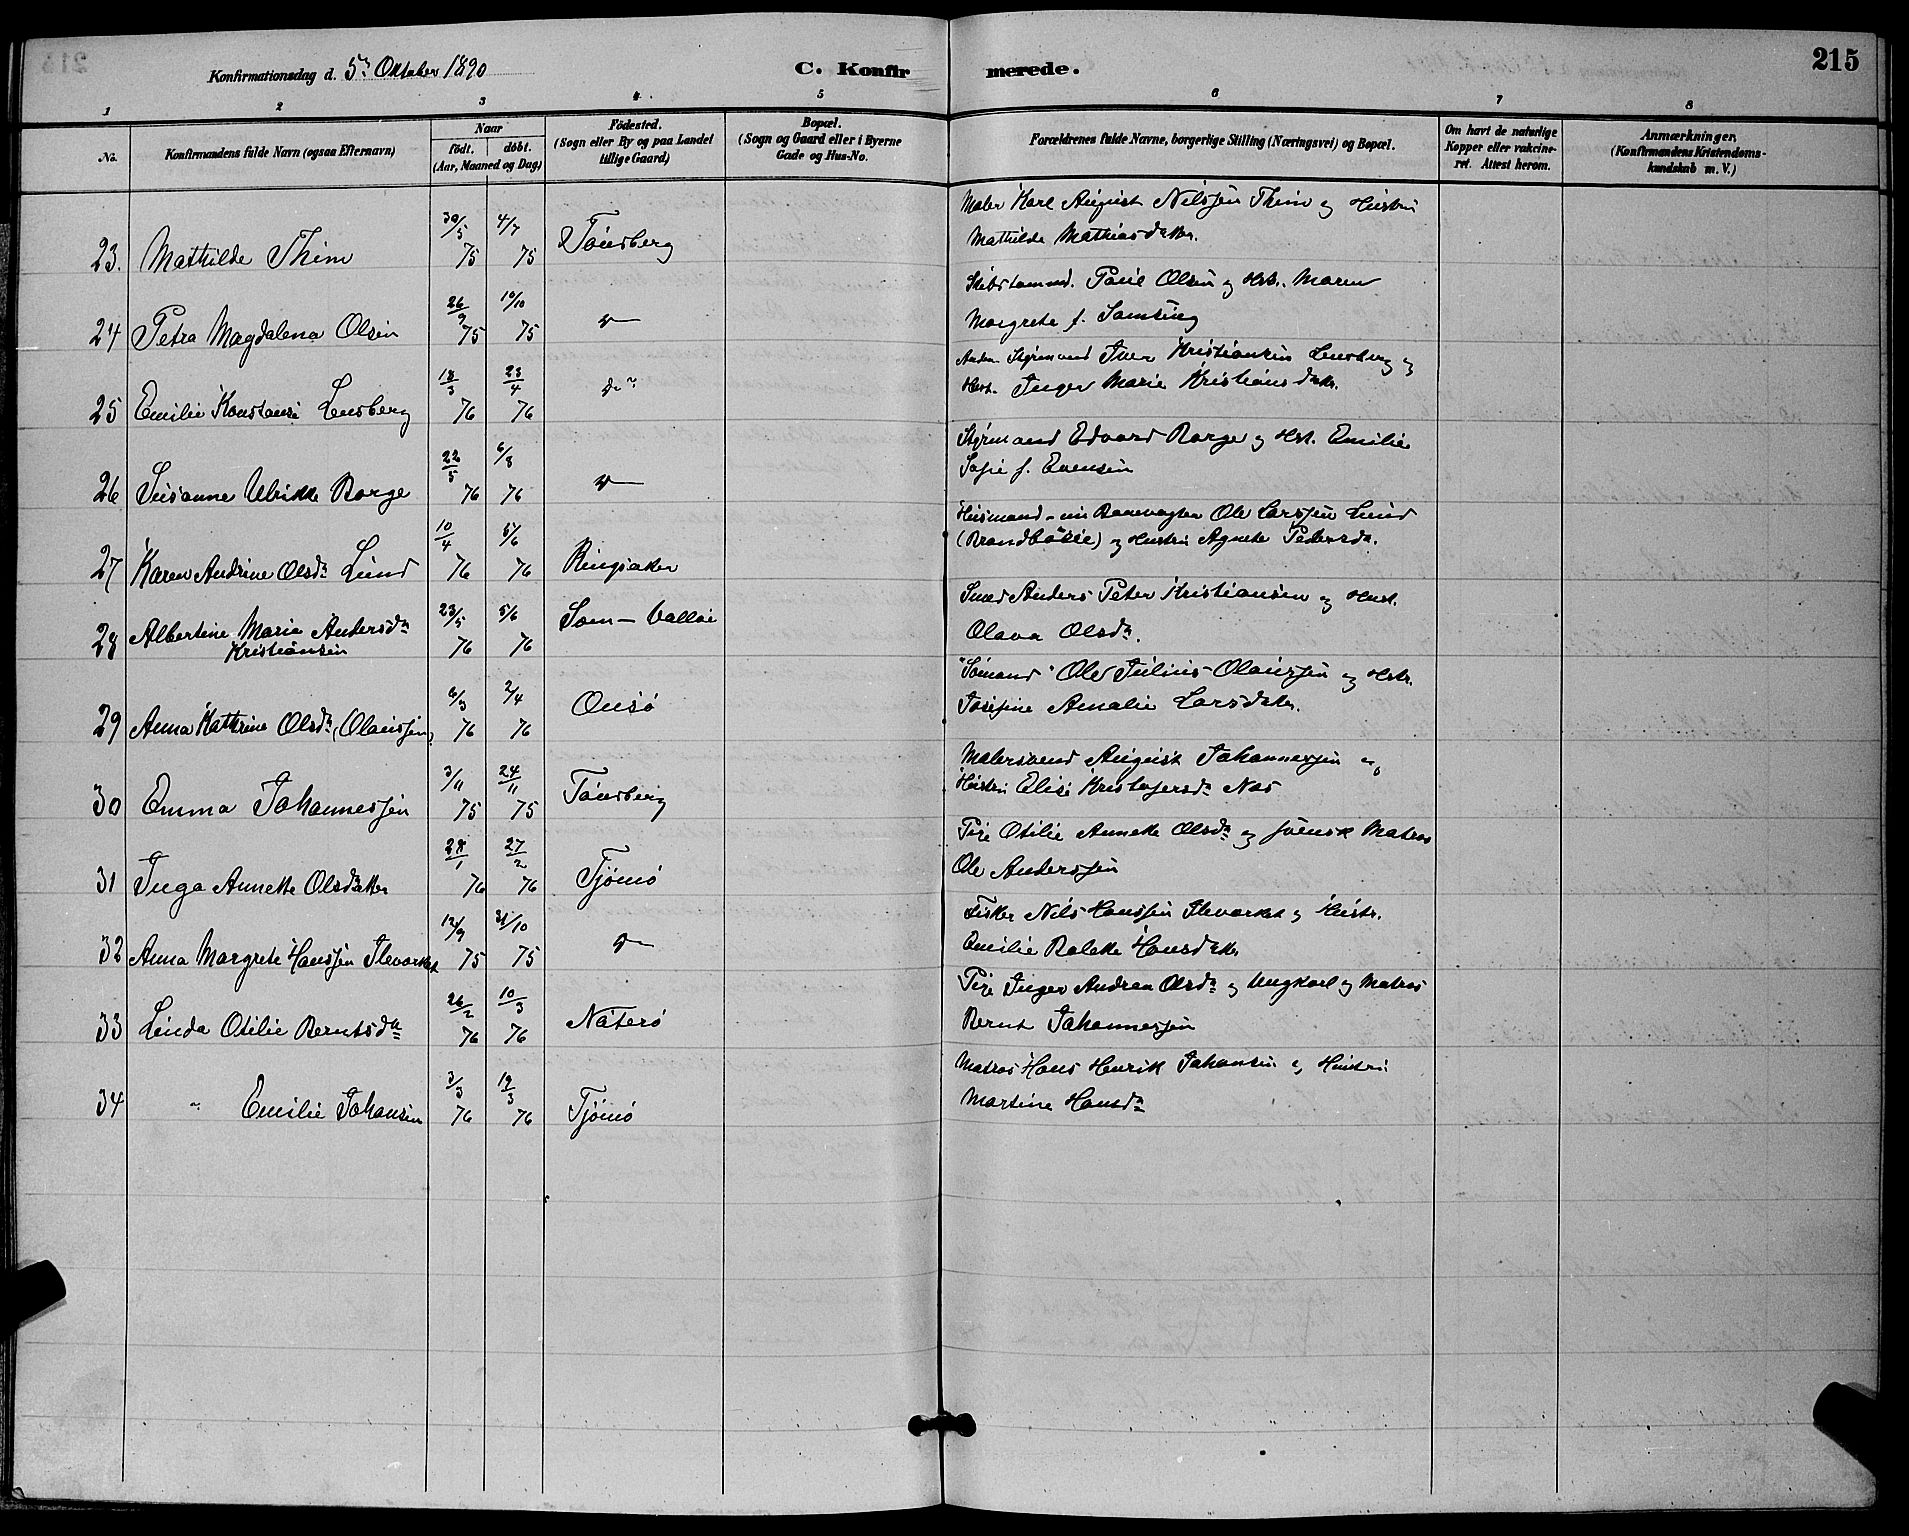 Konfirmationsdag d. 5te Oktober 1890
C. Konfirmerede.
215
1 2 3 4 5 6 7 8
No.
Konfirmandens fulde Navn (ogsaa Efternavn)
Naar
født. døbt.
(Aar, Maaned og Dag)
Fødested.
(Sogn eller By og paa Landet
tillige Gaard)
Bopæl.
(Sogn og Gaard eller i Byerne
Gade og Hus-No.
Forældrenes fulde Navne, borgerlige Stilling (Næringsvei) og Bopæl.
Om havt de naturlige
Kopper eller vakcine-
ret. Attest herom.
Anmærkninger,
(Konfirmandens Kristendoms-
kundskab m. V.)
23. Mathilde Thim 30/5 75 4/7 75 Tönsberg
Maler Karl August Nilssen Thim og Hustru
Mathilde Mathiasdatter.
24 Petra Magdalena Olsen 26/9 75 10/10 75 do
Skibstømmd. Paul Olsen og Hst. Maren
Margrete f. Samsing
25 Emilie Konstanse Lensberg 18/3 76 23/4 76 do
Styrmand Iver Kristiansen Lensberg og
Hust. Inger Marie Kristiansdatter.
26 Susanne Ulrikke Borge 22/5 76 6/8 76 do
Styrmand Edvard Borge og Hst. Emilie
Sofie f. Evensen
27 Karen Andrine Olsdr Lund 10/4 76 5/6 76 Ringsaker
Husmand - nu Banevogter Ole Larssen Lund
og Hustru Agnete Pedersdr.
28 Albertine Marie Andersdr
Kristiansen 23/5 76 5/6 76 Sem - Valløi
Smed Anders Peter Kristiansen og Hust.
Olava Olsdr.
29 Anna Kathrine Olsdr (Olaussen) 6/3 76 2/4 76 Onsö
"Sömand" Ole Julius Olaussen og Hstr.
Josefine Amalie Larsdatter.
30 Emma Johannessen 3/11 75 24/11 75 Tönsberg
Malersvend August Johannessen og
Hustru Elise Kristofersdr Nas
31 Inga Annette Olsdatter 28/1 76 27/2 76 Tjömö
Pige Otilie Annette Olsdr og svensk Matros
Ole Anderssen
32 Anna Margrete Hanssen 12/9 75 31/10 75 do
Fisker Nils Hanssen og Hustr.
Emilie Bolette Hansdatter
33 Linda Otilie Berntsdtr 26/2 76 10/3 76 Nöterö
Pige Inger Andrea Olsdr og Ungkarl og Matros
Bernt Johannessen
34 " Emilie Johansen 3/3 76 19/3 76 Tjömö
Matros Hans Henrik Johansen og Hustru
Martine Hansdr